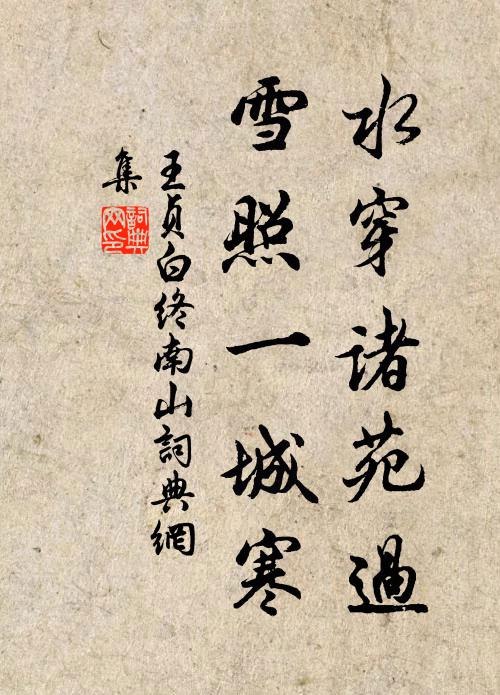 水穿諸苑過
雪照一城寒
王貞白終南山詞典網
集
詞典
网印